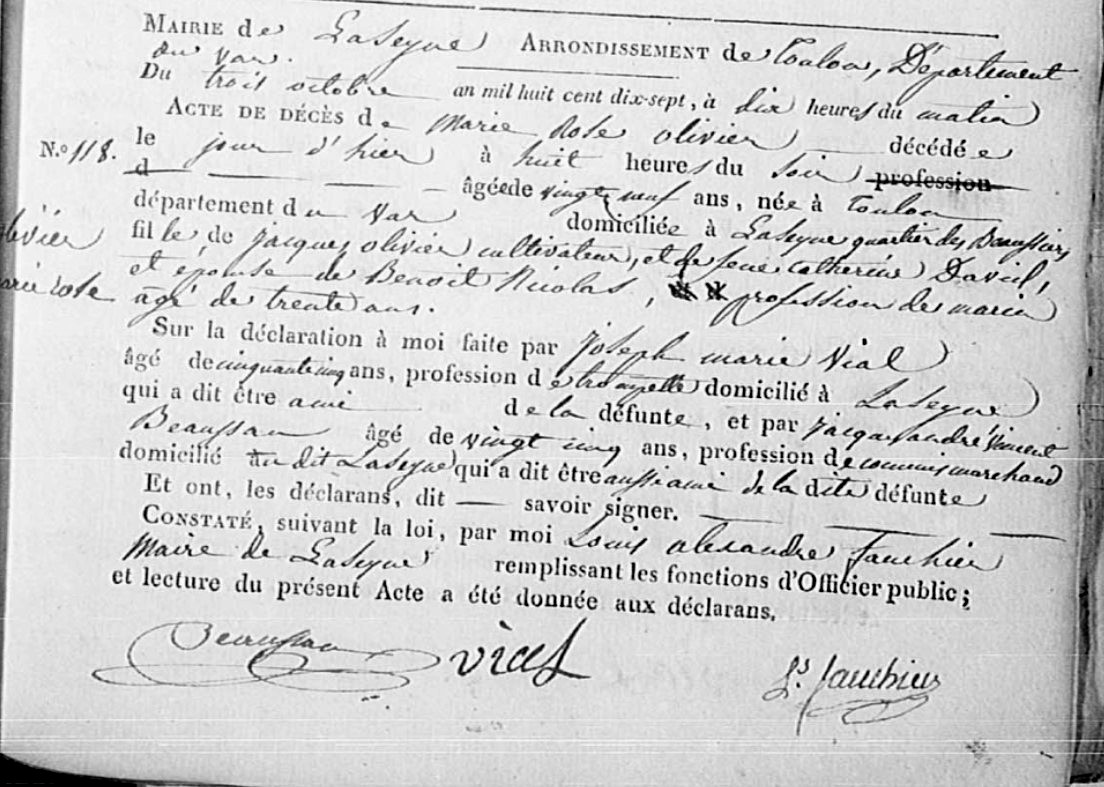 MAIRIE de LaSeyne ARRONDISSEMENT de Toulon, Département
du Var.
Du trois octobre an mil huit cent dix-sept, à dix heures du matin
ACTE DE DÉCÈS de Marie Rose olivier décédée
N.º 118. le jour d'hier à huit heures du soir profession
d âgée de vingt neuf ans, née à Toulon
département du Var domiciliée à LaSeyne quartier des Beaussiers
olivier fille de jacques olivier cultivateur, et de feue catherine David,
et épouse de Benoit Nicolas, profession de marin
marie rose âgé de trente ans.
Sur la déclaration à moi faite par joseph marie Vial
âgé de cinquante cinq ans, profession de trompette domicilié à LaSeyne
qui a dit être ami de la défunte, et par jacques andré Vincent
Beaussan âgé de vingt cinq ans, profession de commis marchand
domicilié au dit LaSeyne qui a dit être aussi ami de la dite défunte
Et ont, les déclarans, dit — savoir signer.
CONSTATÉ, suivant la loi, par moi Louis alexandre fauchier
Maire de LaSeyne remplissant les fonctions d'Officier public;
et lecture du présent Acte a été donnée aux déclarans.
Beaussan vial Ls. fauchier